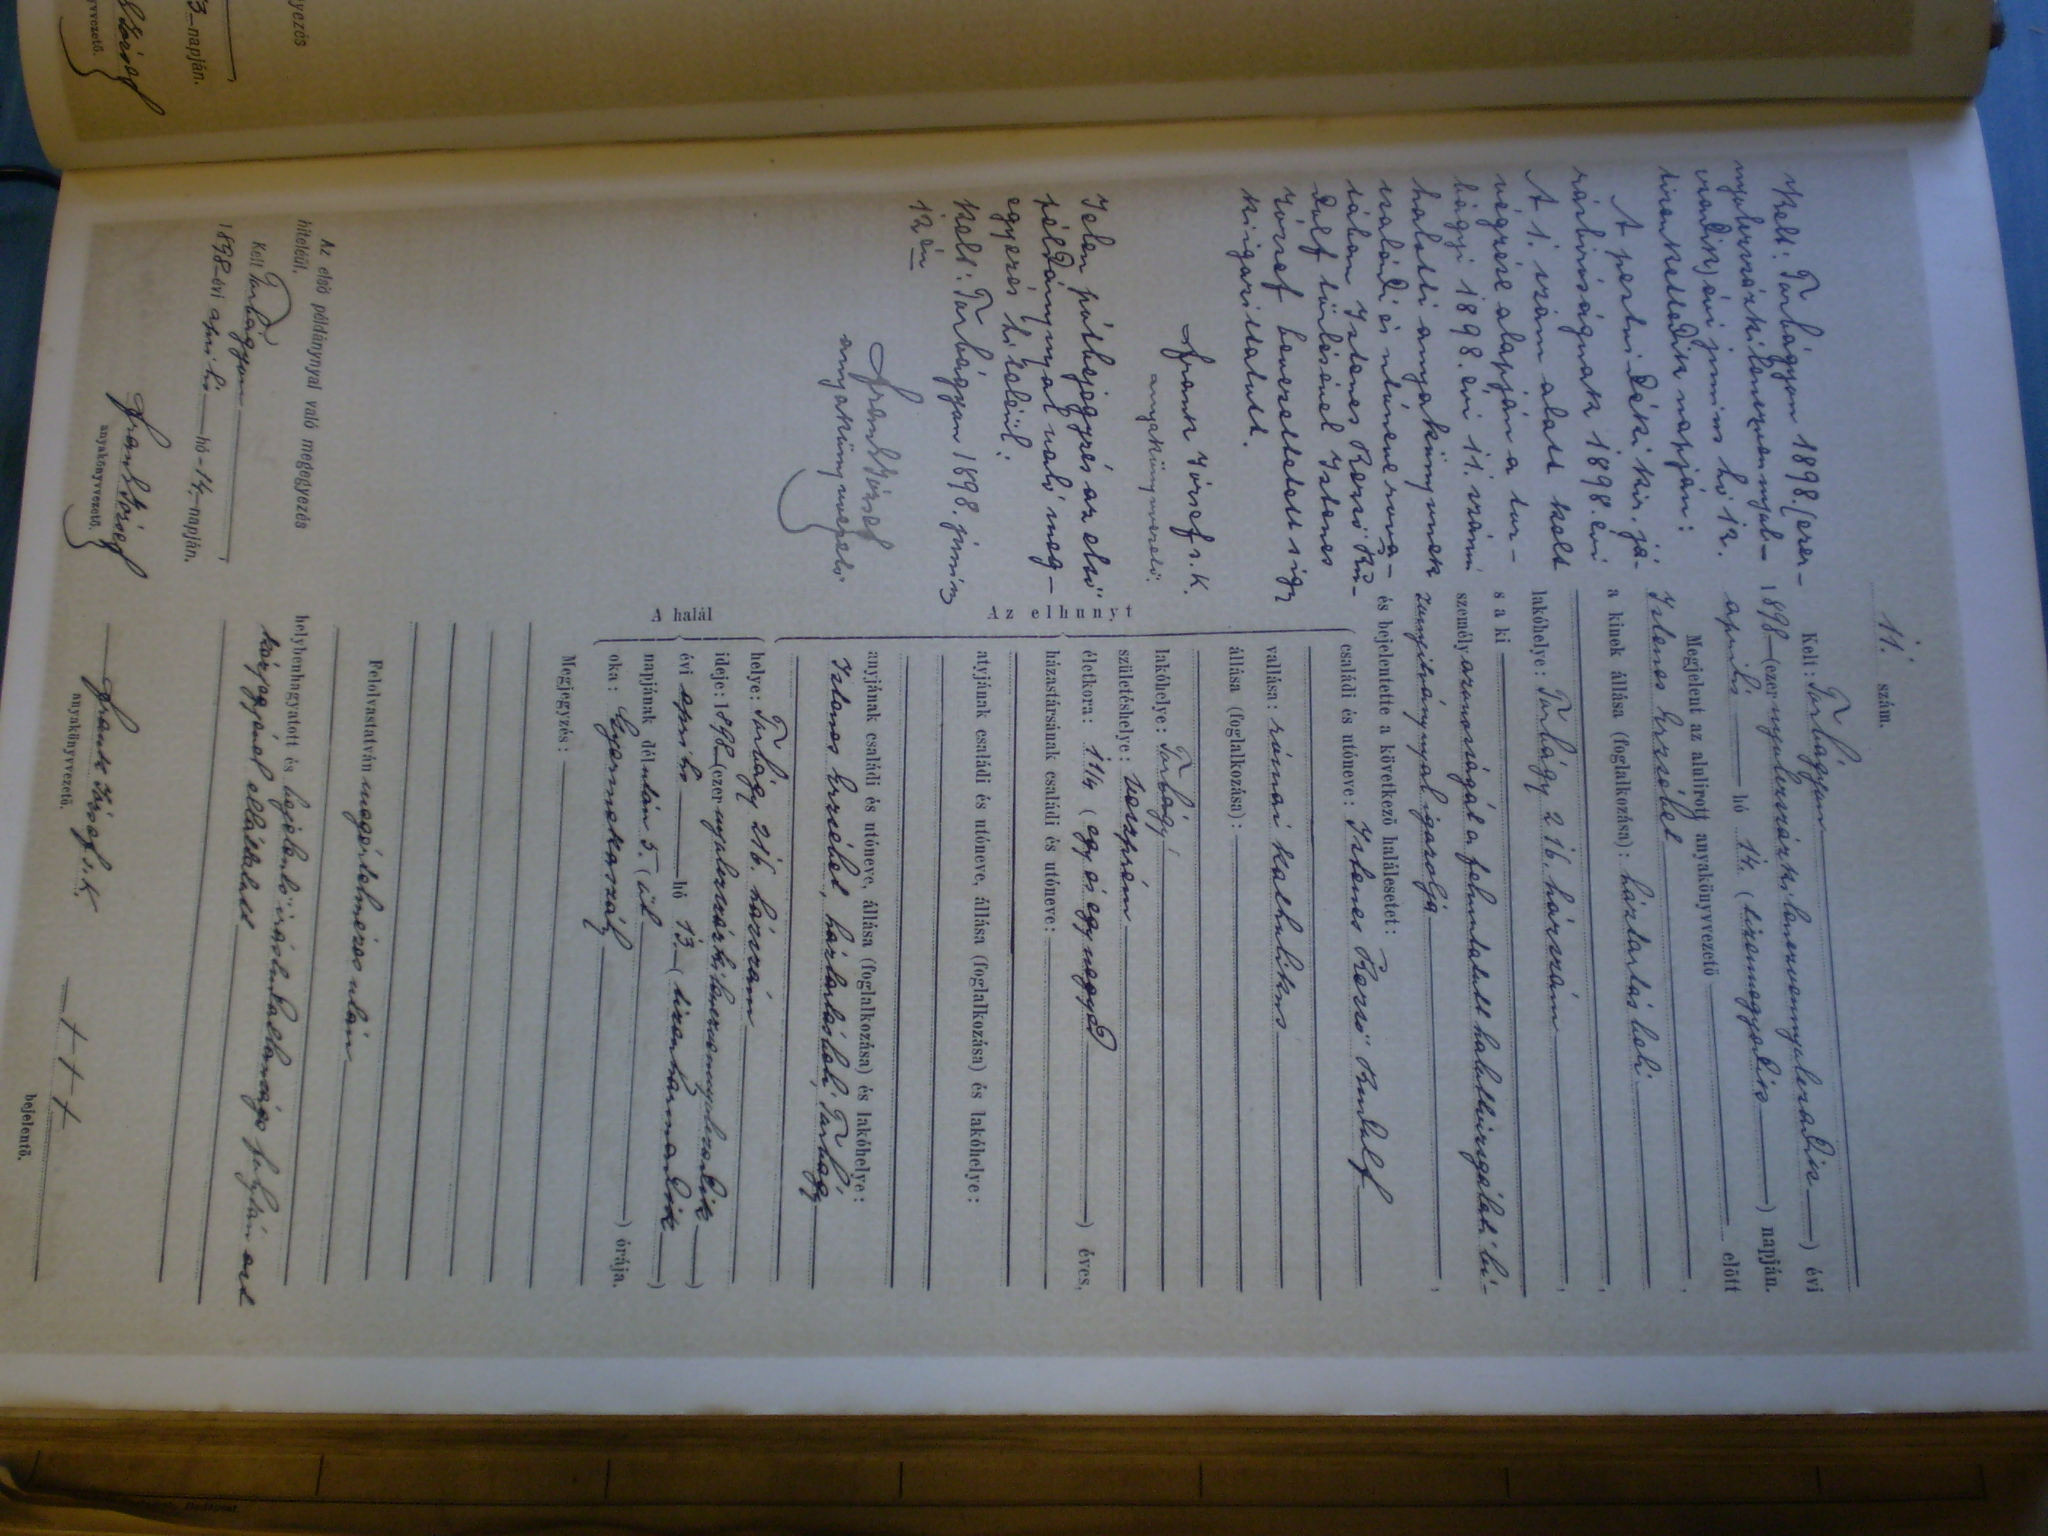 11. szám.
Kelt: Torbágyon
1898 (ezernyolczszázkilenczvennyolczadik) évi
április hó 14. (tizennegyedik) napján.
Megjelent az alulirott anyakönyvvezető előtt
Istenes Erzsébet
a kinek állása (foglalkozása): háztartásbeli
lakóhelye: Torbágy 216. házszám
s a ki
személyazonosságát a felmutatott halottvizsgálati bi-
zonyitványnyal igazolja
és bejelentette a következő halálesetet:
családi és utóneve: Istenes Rezső Rudolf
vallása: római katholikus
állása (foglalkozása):
lakóhelye: Torbágy
születéshelye: Veszprém
életkora: 1 1/4 (egy és egynegyed) éves,
házastársának családi és utóneve:
atyjának családi és utóneve, állása (foglalkozása) és lakóhelye:
anyjának családi és utóneve, állása (foglalkozása) és lakóhelye:
Istenes Erzsébet, háztartásbeli, Torbágy
Az elhunyt
helye: Torbágy 216. házszám
ideje: 1898 (ezernyolczszázkilenczvennyolczadik)
évi április hó 13. (tizenharmadik)
napjának délután 5. (öt) órája.
oka: Gyermekaszály
A halál
Megjegyzés:
Felolvastatván megértelmezés után
helybenhagyatott és bejelentő irástudatlansága folytán
kézjegyével elláttatott
Frank József s. k.
anyakönyvvezető.
+++
bejelentő.
Kelt: Torbágyon 1898. (ezer-
nyolczszázkilenczvennyolcz-
adik) évi junius hó 12.
tizenkettedik napján:
A pestvidéki kir. já-
rásbiróságnak 1898. évi
szám alatt kelt
végzése alapján a tor-
bágyi 1898. évi 11. számu
halotti anyakönyvnek
családi és utóneve rova-
tában Istenes Rezső Ru-
dolf törlésével Istenes
József bevezettetett s igy
kiigazittatott.
Frank József s. k.
anyakönyvvezető.
Jelen pótbejegyzés az első
példánynyal való meg-
egyezés hiteléül:
Kelt: Torbágyon 1898. junius
12 én
Frank József
anyakönyvvezető
Az első példánynyal való megegyezés
hiteléül.
Kelt Torbágyon
1898 évi április hó 14. napján.
Frank József
anyakönyvvezető.
3 napján.
József